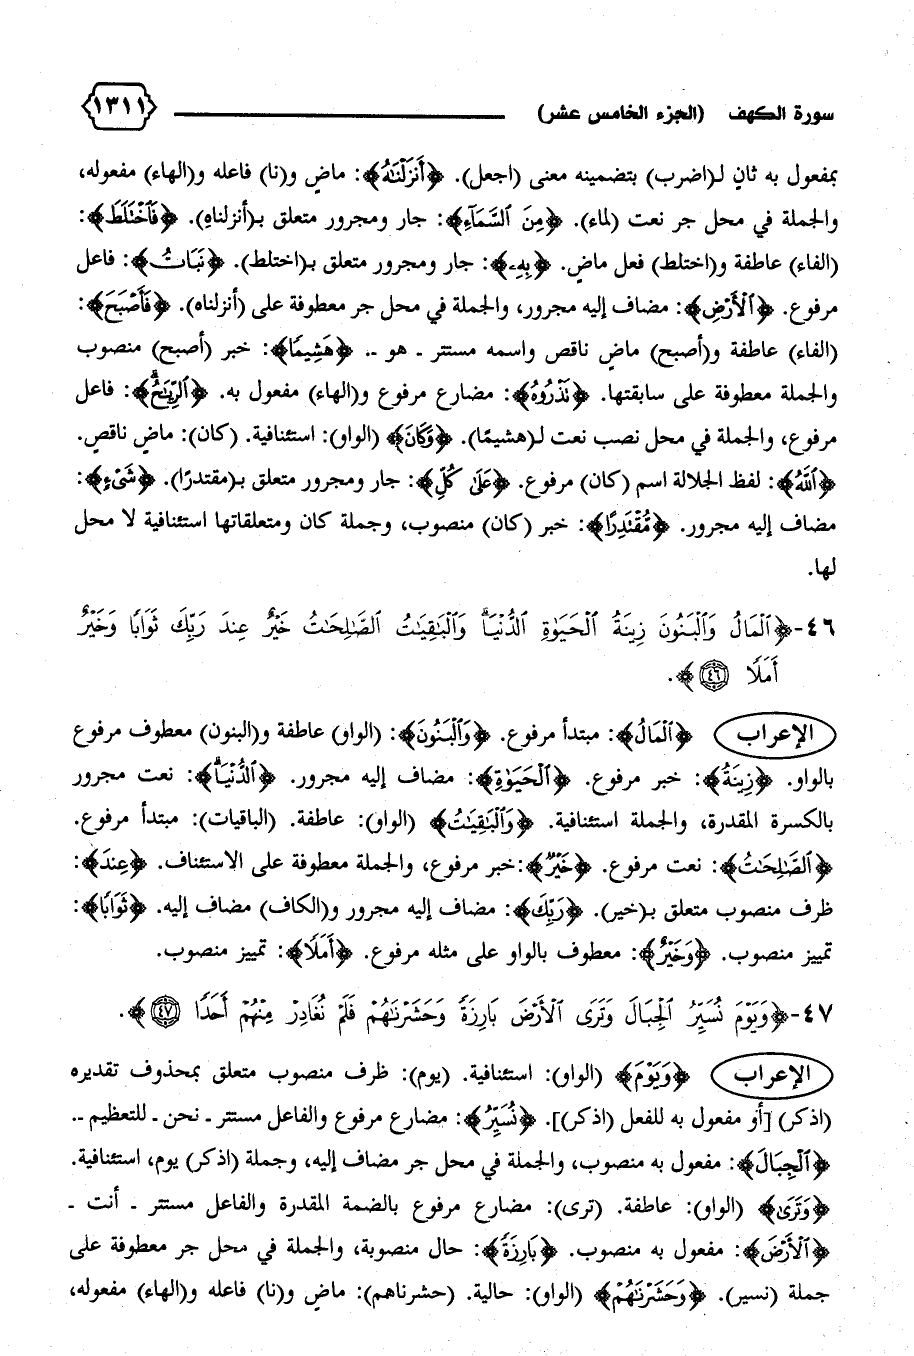 سورة الكهف (الجزء الخامس عشر) ١٣١١
بمفعول به ثانٍ لـ(اضرب) بتضمينه معنى (اجعل). ﴿أَنزَلْنَٰهُ﴾: ماضٍ و(نا) فاعله و(الهاء) مفعوله،
والجملة في محل جر نعت (لماء). ﴿مِنَ ٱلسَّمَآءِ﴾: جار ومجرور متعلق بـ(أنزلناه). ﴿فَٱخْتَلَطَ﴾:
(الفاء) عاطفة و(اختلط) فعل ماضٍ. ﴿بِهِۦ﴾: جار ومجرور متعلق بـ(اختلط). ﴿نَبَاتُ﴾: فاعل
مرفوع. ﴿ٱلْأَرْضِ﴾: مضاف إليه مجرور، والجملة في محل جر معطوفة على (أنزلناه). ﴿فَأَصْبَحَ﴾:
(الفاء) عاطفة و(أصبح) ماضٍ ناقص واسمه مستتر ـ هو ـ. ﴿هَشِيمًا﴾: خبر (أصبح) منصوب
والجملة معطوفة على سابقتها. ﴿نَذْرُوهُ﴾: مضارع مرفوع و(الهاء) مفعول به. ﴿ٱلرِّيَٰحُ﴾: فاعل
مرفوع، والجملة في محل نصب نعت لـ(هشيمًا). ﴿وَكَانَ﴾ (الواو): استئنافية. (كان): ماضٍ ناقص.
﴿ٱللَّهُ﴾: لفظ الجلالة اسم (كان) مرفوع. ﴿عَلَىٰ كُلِّ﴾: جار ومجرور متعلق بـ(مقتدرًا). ﴿شَىْءٍ﴾:
مضاف إليه مجرور. ﴿مُّقْتَدِرًا﴾: خبر (كان) منصوب، وجملة كان ومتعلقاتها استئنافية لا محل
لها.
٤٦-﴿ٱلْمَالُ وَٱلْبَنُونَ زِينَةُ ٱلْحَيَوٰةِ ٱلدُّنْيَا ۖ وَٱلْبَٰقِيَٰتُ ٱلصَّٰلِحَٰتُ خَيْرٌ عِندَ رَبِّكَ ثَوَابًا وَخَيْرٌ
أَمَلًا ٤٦﴾.
الإعراب ﴿ٱلْمَالُ﴾: مبتدأ مرفوع. ﴿وَٱلْبَنُونَ﴾: (الواو) عاطفة و(البنون) معطوف مرفوع
بالواو. ﴿زِينَةُ﴾: خبر مرفوع. ﴿ٱلْحَيَوٰةِ﴾: مضاف إليه مجرور. ﴿ٱلدُّنْيَا ۖ﴾: نعت مجرور
بالكسرة المقدرة، والجملة استئنافية. ﴿وَٱلْبَٰقِيَٰتُ﴾ (الواو): عاطفة. (الباقيات): مبتدأ مرفوع.
﴿ٱلصَّٰلِحَٰتُ﴾: نعت مرفوع. ﴿خَيْرٌ﴾:خبر مرفوع، والجملة معطوفة على الاستئناف. ﴿عِندَ﴾:
ظرف منصوب متعلق بـ(خير). ﴿رَبِّكَ﴾: مضاف إليه مجرور و(الكاف) مضاف إليه. ﴿ثَوَابًا﴾:
تمييز منصوب. ﴿وَخَيْرٌ﴾: معطوف بالواو على مثله مرفوع. ﴿أَمَلًا﴾: تمييز منصوب.
٤٧-﴿وَيَوْمَ نُسَيِّرُ ٱلْجِبَالَ وَتَرَى ٱلْأَرْضَ بَارِزَةً وَحَشَرْنَٰهُمْ فَلَمْ نُغَادِرْ مِنْهُمْ أَحَدًا ٤٧﴾.
الإعراب ﴿وَيَوْمَ﴾ (الواو): استئنافية. (يوم): ظرف منصوب متعلق بمحذوف تقديره
(اذكر) [أو مفعول به للفعل (اذكر)]. ﴿نُسَيِّرُ﴾: مضارع مرفوع والفاعل مستتر ـ نحن ـ للتعظيم ـ.
﴿ٱلْجِبَالَ﴾: مفعول به منصوب، والجملة في محل جر مضاف إليه، وجملة (اذكر) يوم، استئنافية.
﴿وَتَرَى﴾ (الواو): عاطفة. (ترى): مضارع مرفوع بالضمة المقدرة والفاعل مستتر ـ أنت ـ
﴿ٱلْأَرْضَ﴾: مفعول به منصوب. ﴿بَارِزَةً﴾: حال منصوبة، والجملة في محل جر معطوفة على
جملة (نسير). ﴿وَحَشَرْنَٰهُمْ﴾ (الواو): حالية. (حشرناهم): ماضٍ و(نا) فاعله و(الهاء) مفعوله،